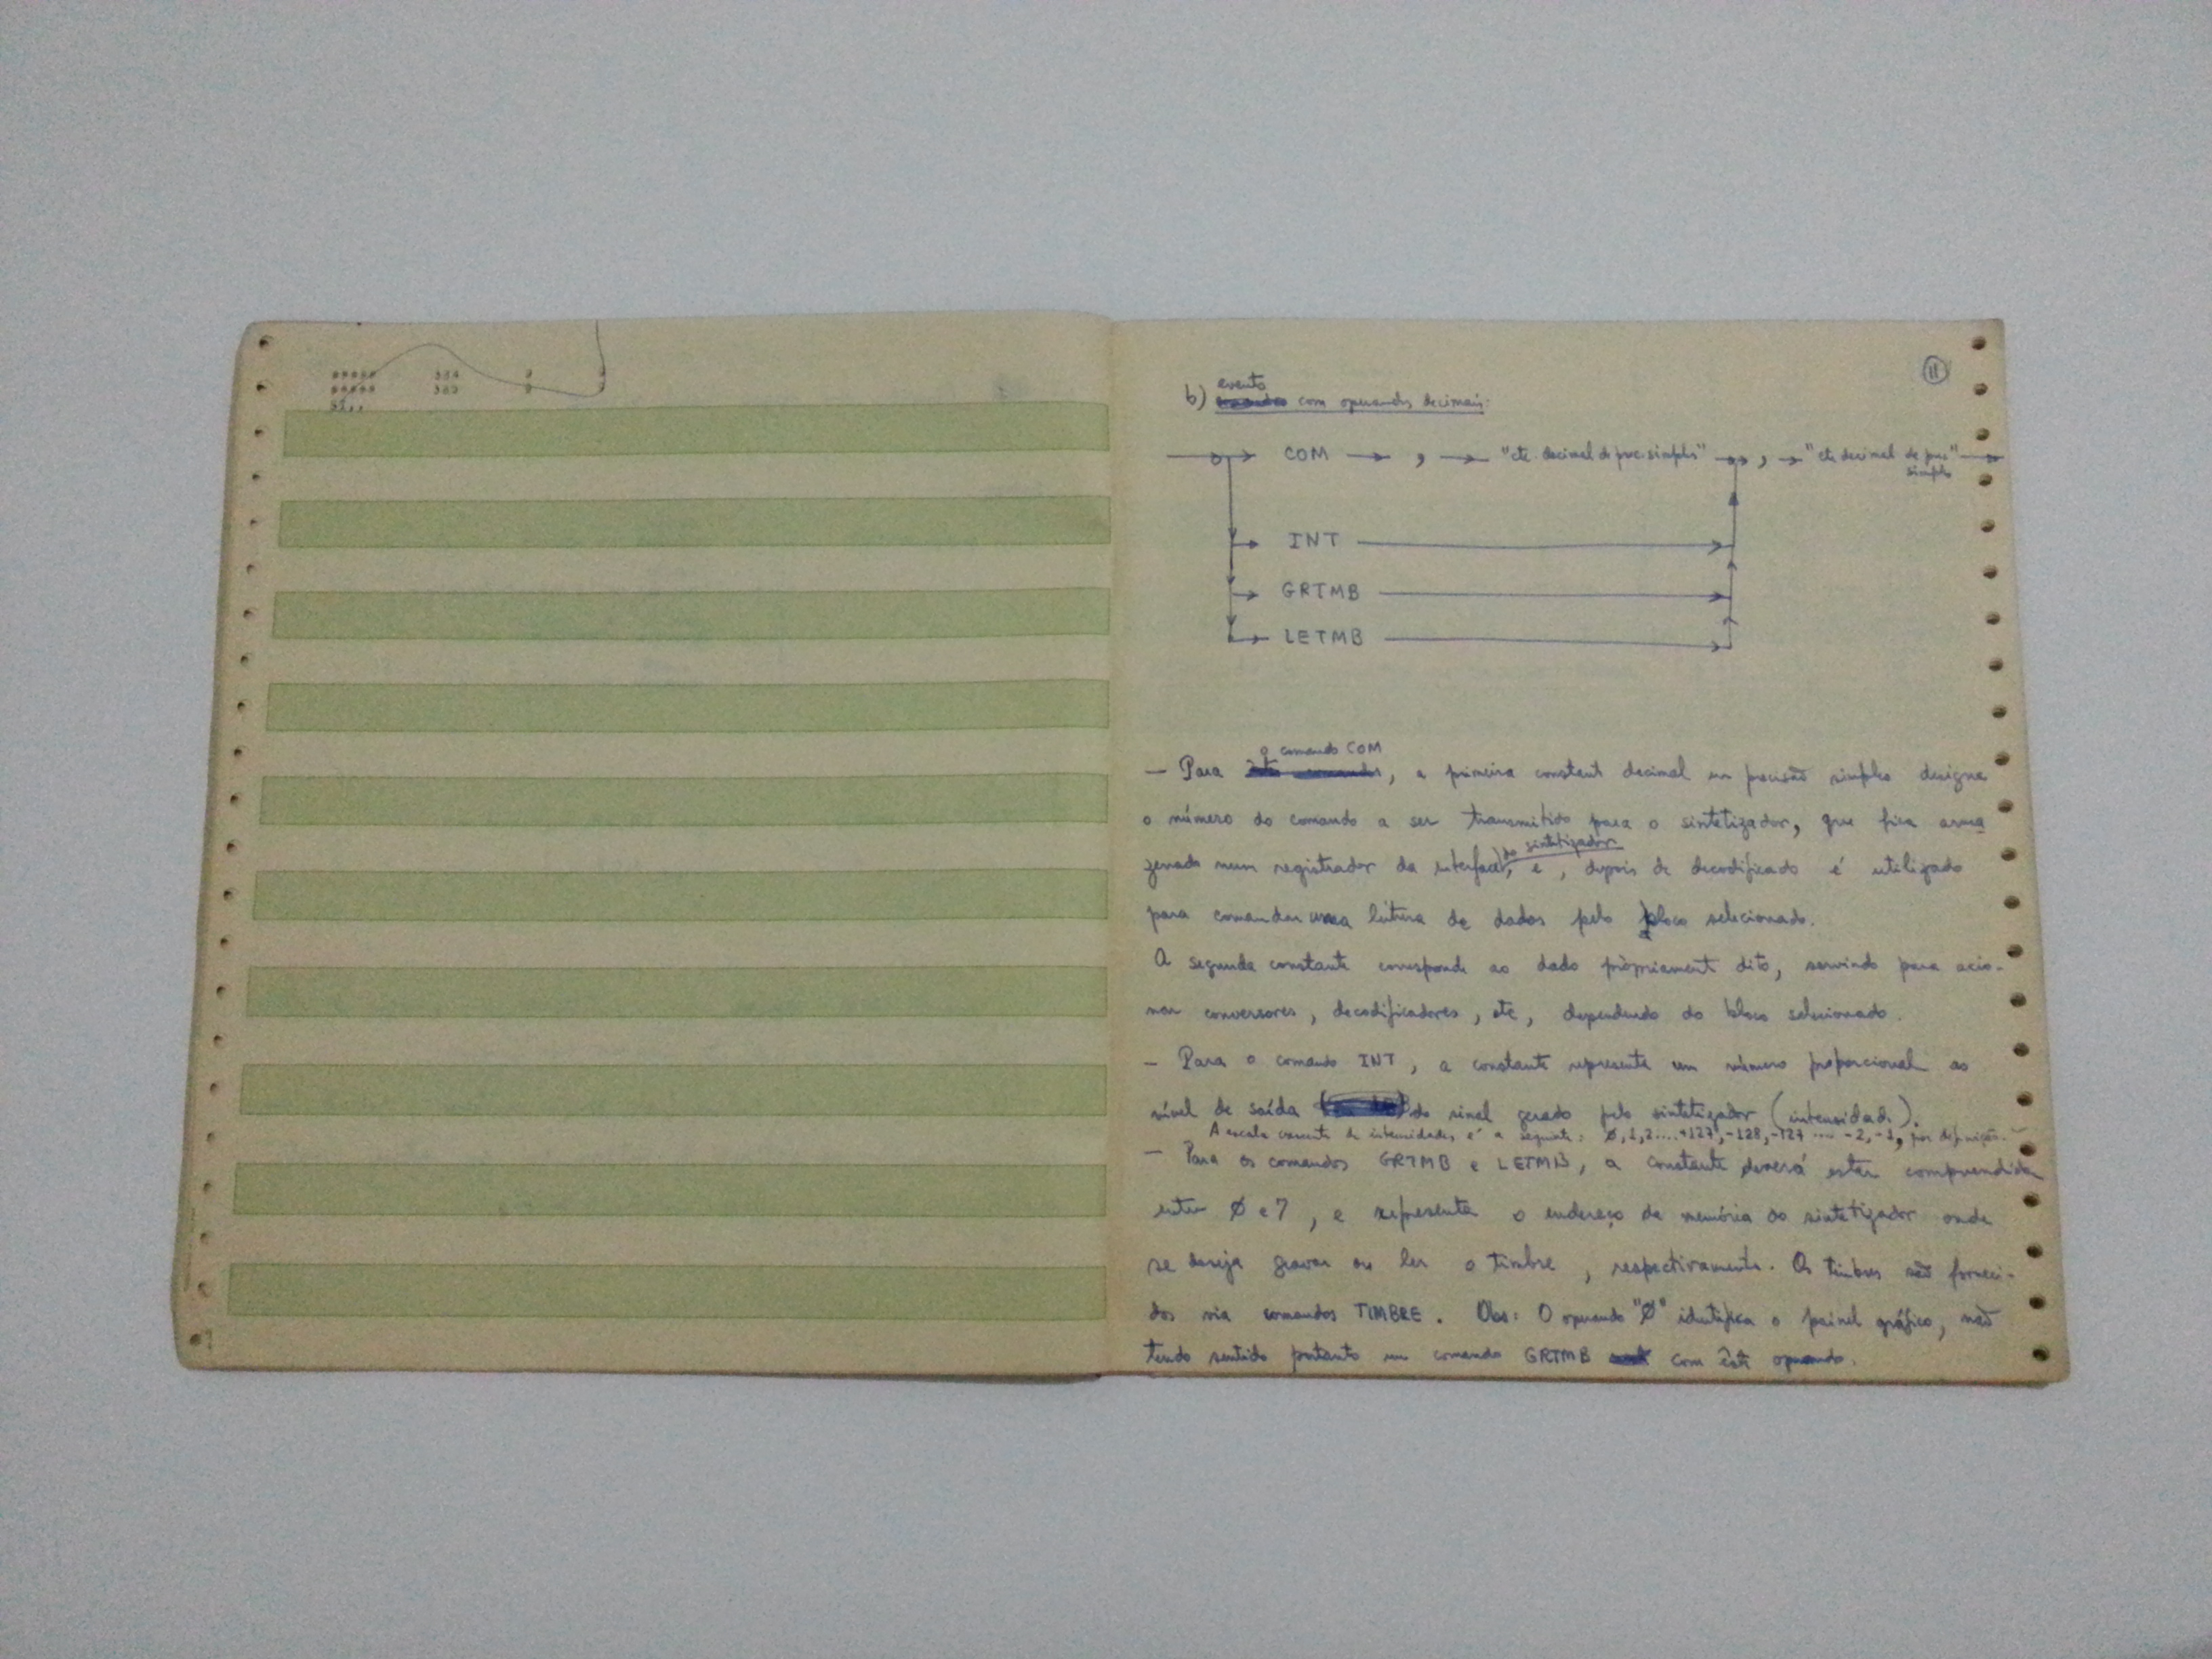 11
b) evento com operandos decimais:
COM → , → "cte. decimal de prec. simples" → , → "cte decimal de prec" →
simples
INT
GRTMB
LETMB
o comando COM
— Para , a primeira constante decimal em precisão simples designa
o número do comando a ser transmitido para o sintetizador, que fica arma
zenado num registrador da interface do sintetizador e, depois de decodificado é utilizado
para comandar uma leitura de dados pelo bloco selecionado.
A segunda constante corresponde ao dado pròpriamente dito, servindo para acio-
nar conversores, decodificadores, etc, dependendo do bloco selecionado.
— Para o comando INT, a constante representa um número proporcional ao
nível de saída do sinal gerado pelo sintetizador (intensidade).
A escala crescente de intensidades é a seguinte: Ø,1,2....+127,-128,-127....-2,-1, por definição.
— Para os comandos GRTMB e LETMB, a constante deverá estar compreendida
entre Ø e 7, e representa o endereço de memória do sintetizador onde
se deseja gravar ou ler o timbre, respectivamente. Os timbres são forneci-
dos via comandos TIMBRE. Obs: O operando "Ø" identifica o painel gráfico, não
tendo sentido portanto um comando GRTMB com este operando.